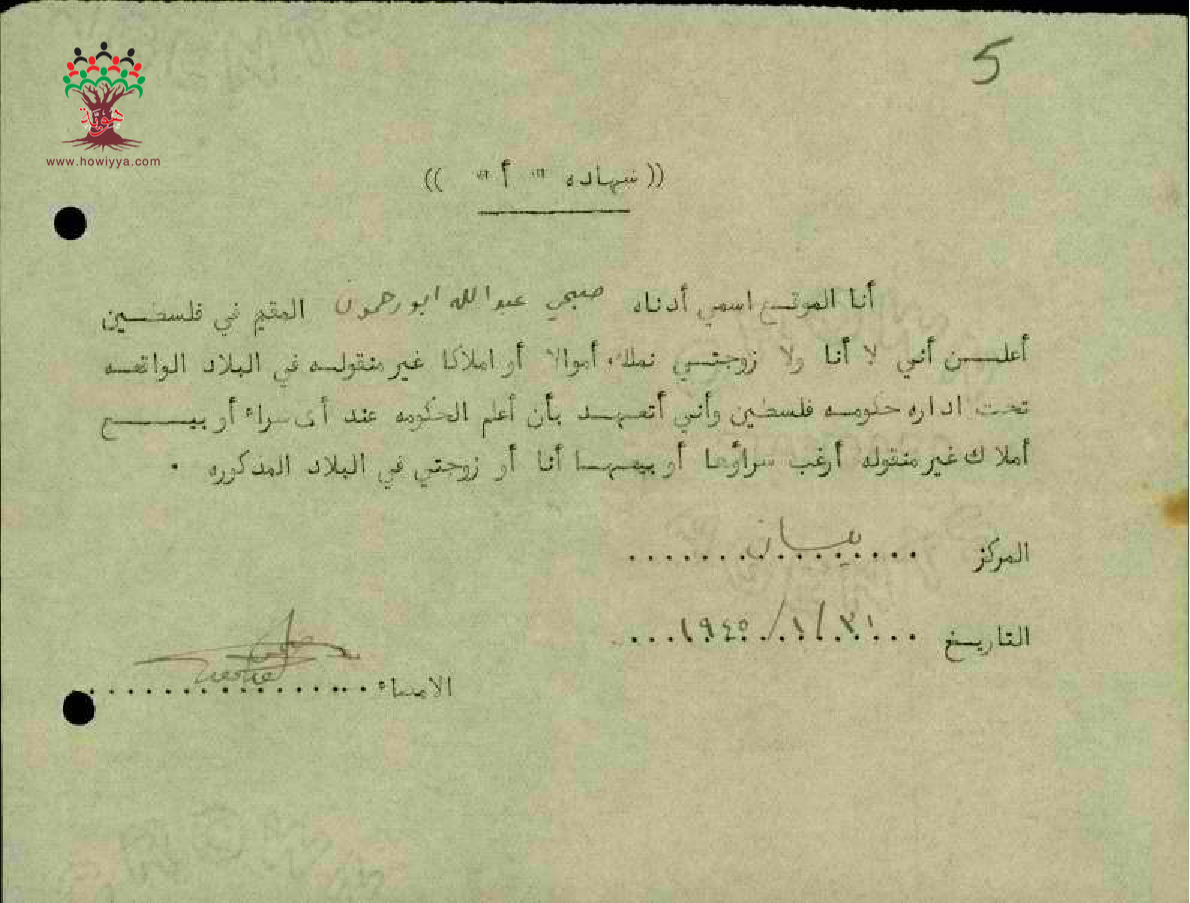 5
هوية
www.howiyya.com
(( شهاده " أ " ))
أنا الموقع اسمي أدناه صبحي عبدالله ابورحمون المقيم في فلسطين
أعلن أني لا أنا ولا زوجتي نملك أموالا أو املاكا غير منقوله في البلاد الواقعه
تحت اداره حكومه فلسطين وأني أتعهد بأن أعلم الحكومه عند أى شراء أو بيع
أملاك غير منقوله أرغب شراؤها أو بيعها أنا أو زوجتي في البلاد المذكوره .
المركز بيسان
التاريخ ٣١/١/١٩٤٥
الامضاء